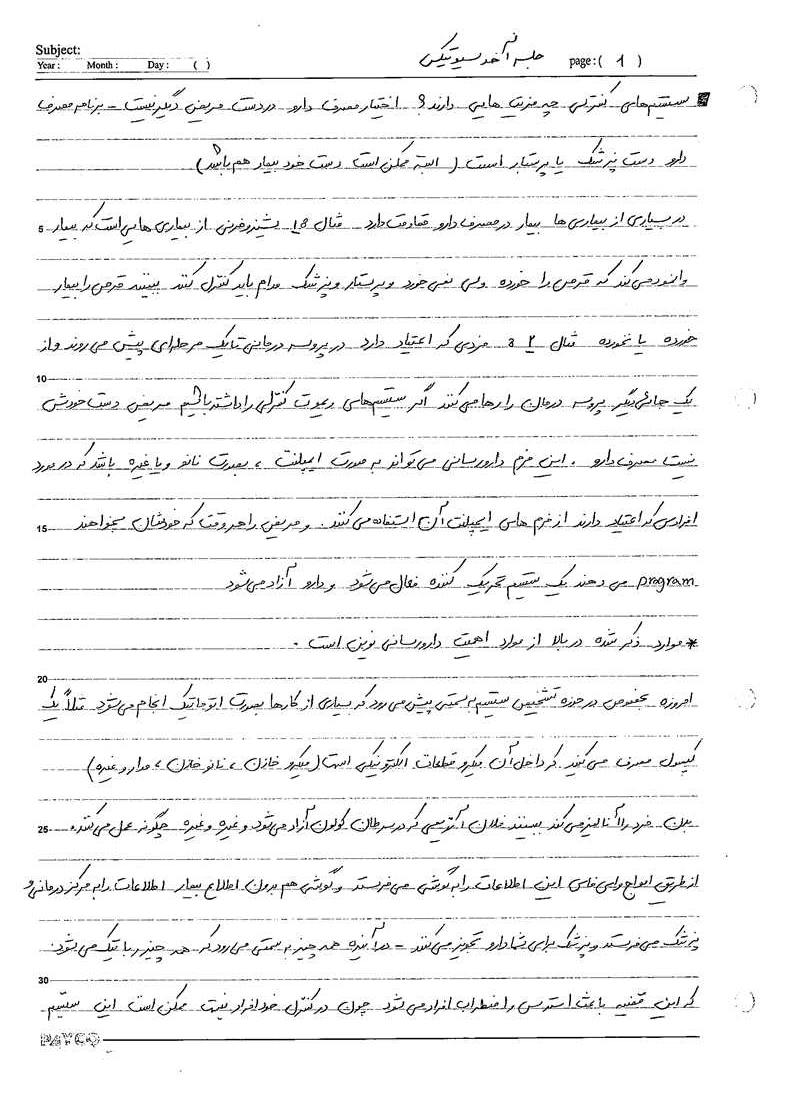 Subject:
Year: Month: Day: ( )
جلسه آخر سینوتیکس page: ( 1 )
سیستم‌های کنترلی چه مزیت هایی دارند؟ اختیار مصرف دارو در دست مریض دیگر نیست - برنامه مصرف
دارو دست پزشک یا پرستار است ( البته ممکن است دست خود بیمار هم باشد )
در بسیاری از بیماری ها بیمار در مصرف دارو مقاومت دارد مثال 1: شیزوفرنی از بیماری هایی است که بیمار
5
وانمود می کند که قرص را خورده ولی نمی خورد و پرستار و پزشک مدام باید کنترل کنند ببینند قرص را بیمار
خورده یا نخورده مثال 2: مردمی که اعتیاد دارد در پروسه درمانی تا یک مرحله ای پیش می روند و از
10
یک جائی دیگر پروسه درمان را رها می کنند اگر سیستم‌های ریموت کنترلی را داشته باشیم مریض دست خودش
نیست مصرف دارو . این فرم دارورسانی می تواند به صورت ایمپلنت ، بصورت نانو و یا غیره باشد که در مورد
افرادی که اعتیاد دارند از فرم های ایمپلنت آن استفاده می کنند . و مریض را هر وقت که خودشان میخواهند
15
program می دهند یک سیستم تحریک کننده فعال می شود و دارو آزاد می شود
* موارد ذکر شده در بالا از موارد اهمیت دارورسانی نوین است .
20
امروزه بخصوص در حوزه تشخیص سیستم به سمتی پیش می رود که بسیاری از کارها بصورت اتوماتیک انجام می شود مثلاً یک
کپسول مصرف می کنید که داخل آن میکرو قطعات الکترونیکی است ( میکرو خازن ، نانو خازن ، مدار و غیره )
بدن فرد را آنالیز می کند ببینند فلان آنزیمی که در سرطان کولون آزاد می شود و غیره و غیره چگونه عمل می کند.
25
از طریق امواج وای فای این اطلاعات را به گوشی می فرستد و گوشی هم بدون اطلاع بیمار اطلاعات را به مرکز درمانی و
پزشک می فرستد و پزشک برای شما دارو تجویز می کند - در آینده همه چیز به سمتی می رود که همه چیز رباتیک می شود
30
که این قضیه باعث استرس و اضطراب افراد می شود چون در کنترل خود افراد نیست ممکن است این سیستم
PAYCO